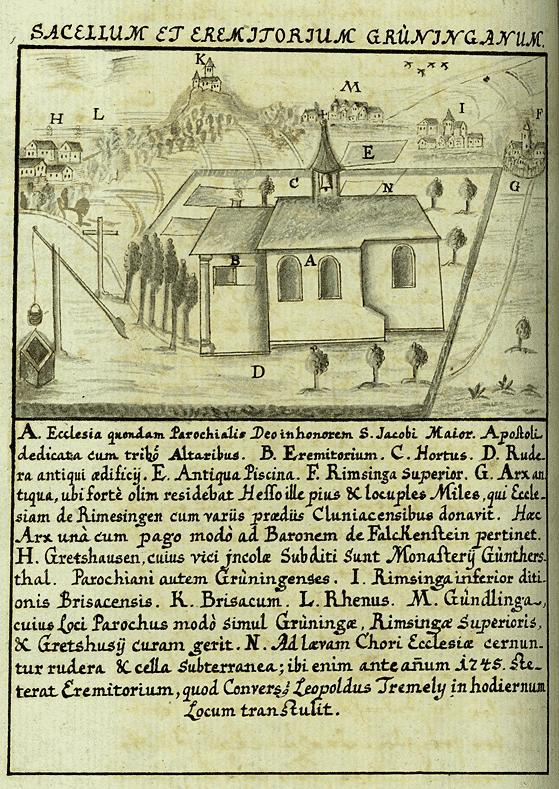 SACELLUM ET EREMITORIUM GRÜNINGANUM.
K
M
H
L
I
F
E
C
N
G
B
A
D
A. Ecclesia quondam Parochialis Deo in honorem S. Jacobi Maior. Apostoli
dedicata cum tribȝ Altaribus. B. Eremitorium. C. Hortus. D. Rude-
ra antiqui ædificij. E. Antiqua Piscina. F. Rimsinga Superior. G. Arx an
tiqua, ubi fortè olim residebat Hesso ille pius & locuples Miles, qui Eccle-
siam de Rimesingen cum variis prædiis Cluniacensibus donavit. Hæc
Arx unà cum pago modò ad Baronem de Falckenstein pertinet.
H. Gretshausen, cuius vici jncolæ Subditi Sunt Monasterij Günthers-
thal. Parochiani autem Grüningenses. I. Rimsinga inferior diti-
onis Brisacensis. K. Brisacum. L. Rhenus. M. Gündlinga,
cuius Loci Parochus modò simul Grüningæ, Rimsingæ Superioris,
& Gretshusij curam gerit. N. Ad lævam Chori Ecclesiæ cernun-
tur rudera & cella Subterranea; ibi enim ante añum 1745. Ste-
terat Eremitorium, quod Conversȝ Leopoldus Tremely in hodiernum
Locum transtulit.